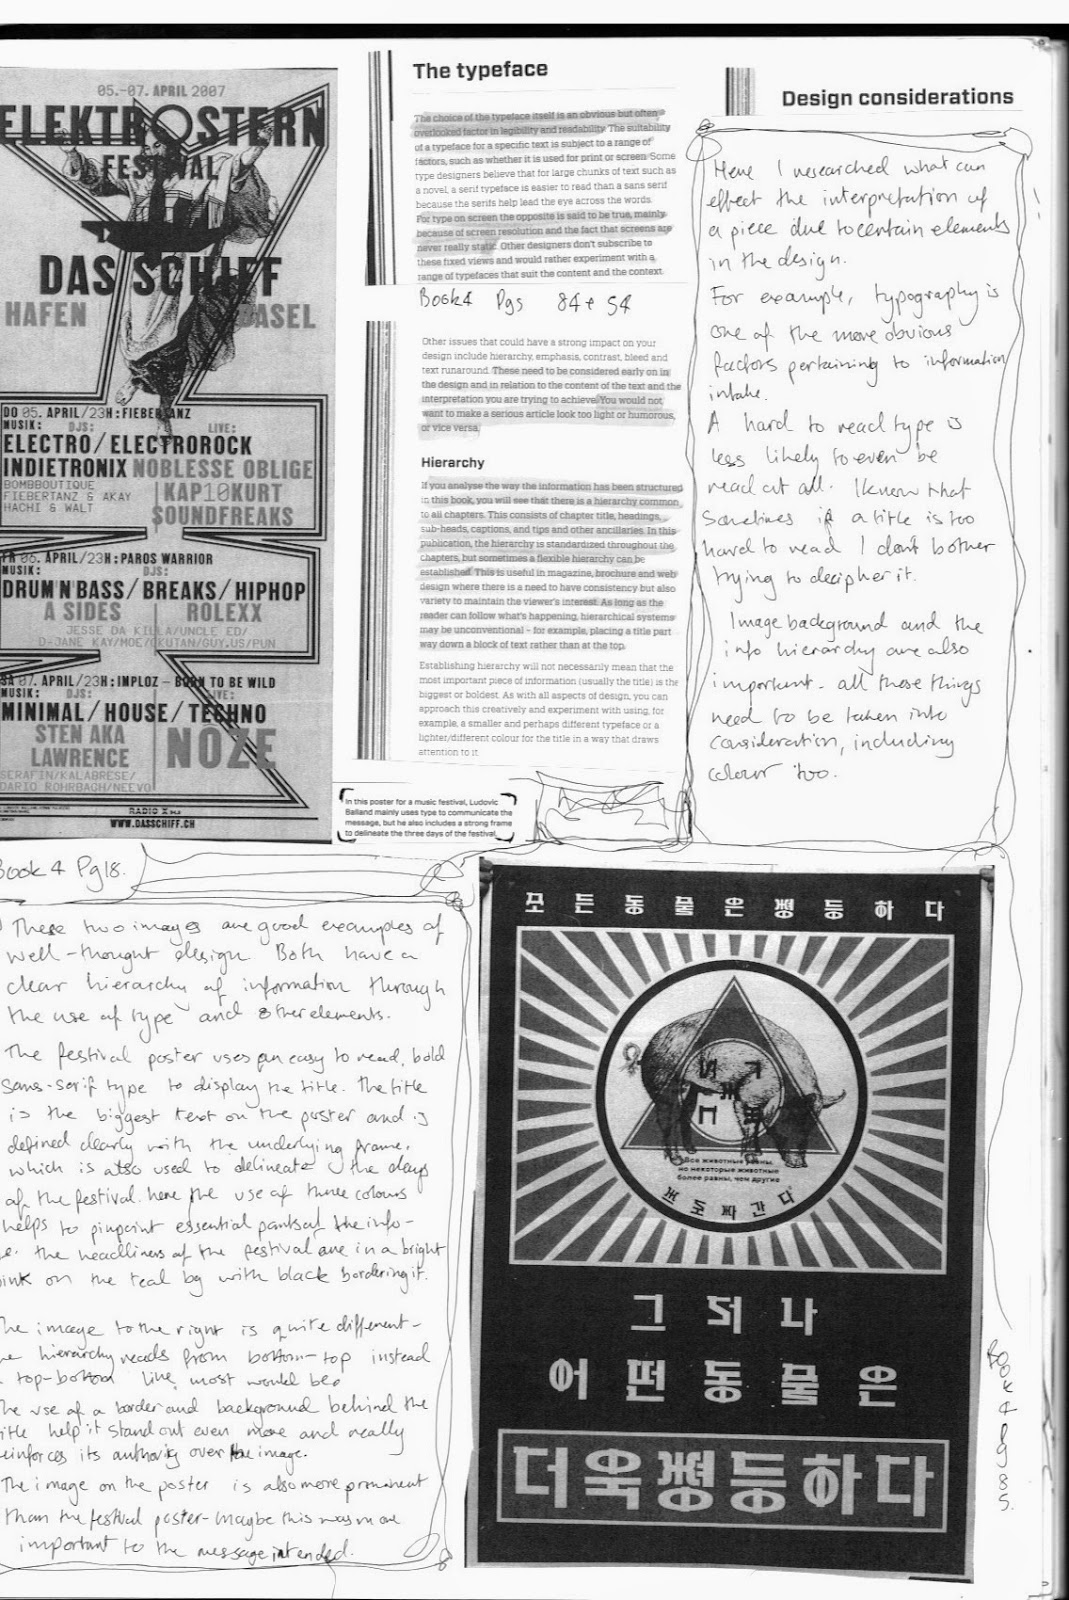 05.-07. APRIL 2007
ELEKTROSTERN
FESTIVAL
DAS SCHIFF
HAFEN BASEL
DO 05. APRIL/23H: FIEBERTANZ
MUSIK: DJS: LIVE:
ELECTRO/ELECTROROCK
INDIETRONIX NOBLESSE OBLIGE
BOMBBOUTIQUE
FIEBERTANZ & AKAY
HACHI & WALT
KAP10KURT
SOUNDFREAKS
FR 06. APRIL/23H: PAROS WARRIOR
MUSIK: DJS:
DRUM'N'BASS/BREAKS/HIPHOP
A SIDES ROLEXX
JESSE DA KILLA/UNCLE ED/
D-JANE KAY/MOE/CHUTAN/GUY.US/PUN
SA 07. APRIL/23H: IMPLOZ – BORN TO BE WILD
MUSIK: DJS: LIVE:
MINIMAL/HOUSE/TECHNO
STEN AKA
LAWRENCE
NÔZE
SERAFIN/KALABRESE/
DARIO ROHRBACH/NEEVO
RADIO X
WWW.DASSCHIFF.CH
The typeface
The choice of the typeface itself is an obvious but often
overlooked factor in legibility and readability. The suitability
of a typeface for a specific text is subject to a range of
factors, such as whether it is used for print or screen. Some
type designers believe that for large chunks of text such as
a novel, a serif typeface is easier to read than a sans serif
because the serifs help lead the eye across the words.
For type on screen the opposite is said to be true, mainly
because of screen resolution and the fact that screens are
never really static. Other designers don't subscribe to
these fixed views and would rather experiment with a
range of typefaces that suit the content and the context.
Book 4 Pgs 84 + 54
Other issues that could have a strong impact on your
design include hierarchy, emphasis, contrast, bleed and
text runaround. These need to be considered early on in
the design and in relation to the content of the text and the
interpretation you are trying to achieve. You would not
want to make a serious article look too light or humorous,
or vice versa.
Hierarchy
If you analyse the way the information has been structured
in this book, you will see that there is a hierarchy common
to all chapters. This consists of chapter title, headings,
sub-heads, captions, and tips and other ancillaries. In this
publication, the hierarchy is standardized throughout the
chapters, but sometimes a flexible hierarchy can be
established. This is useful in magazine, brochure and web
design where there is a need to have consistency but also
variety to maintain the viewer's interest. As long as the
reader can follow what's happening, hierarchical systems
may be unconventional – for example, placing a title part
way down a block of text rather than at the top.
Establishing hierarchy will not necessarily mean that the
most important piece of information (usually the title) is the
biggest or boldest. As with all aspects of design, you can
approach this creatively and experiment with using, for
example, a smaller and perhaps different typeface or a
lighter/different colour for the title in a way that draws
attention to it.
In this poster for a music festival, Ludovic
Balland mainly uses type to communicate the
message, but he also includes a strong frame
to delineate the three days of the festival.
Design considerations
Here I researched what can
effect the interpretation of
a piece due to certain elements
in the design.
For example, typography is
one of the more obvious
factors pertaining to information
intake.
A hard to read type is
less likely to even be
read at all. I know that
sometimes if a title is too
hard to read I don't bother
trying to decipher it.
Image background and the
info hierarchy are also
important - all these things
need to be taken into
consideration, including
colour too.
Book 4 Pg 18.
These two images are good examples of
well-thought design. Both have a
clear hierarchy of information through
the use of type and other elements.
The festival poster uses an easy to read, bold
sans-serif type to display the title. The title
is the biggest text on the poster and is
defined clearly with the underlying frame,
which is also used to delineate the days
of the festival. here the use of three colours
helps to pinpoint essential parts of the info-
ie. the headliners of the festival are in a bright
pink on the teal bg with black bordering it.
The image to the right is quite different-
the hierarchy reads from bottom-top instead
top-bottom like most would be.
The use of a border and background behind the
title help it stand out even more and really
reinforces its authority over the image.
The image on the poster is also more prominent
than the festival poster - maybe this was more
important to the message intended.
모든동물은평등하다
Все животные равны,
но некоторые животные
более равны, чем другие
그러나
어떤동물은
더욱평등하다
BOOK 4 Pg 85.